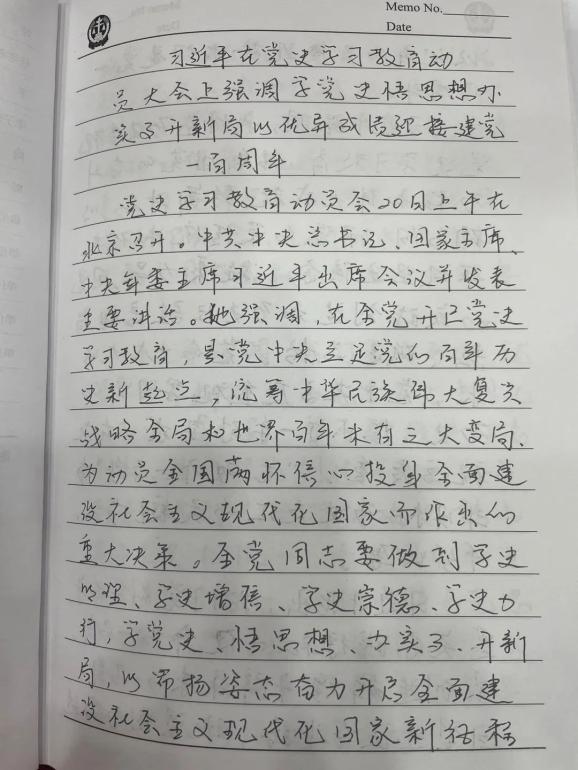 Memo No.
Date
习近平在党史学习教育动
员大会上强调学党史悟思想办
实事开新局以优异成绩迎接建党
一百周年
党史学习教育动员会20日上午在
北京召开。中共中央总书记、国家主席、
中央军委主席习近平出席会议并发表
重要讲话。他强调，在全党开展党史
学习教育，是党中央立足党的百年历
史新起点，统筹中华民族伟大复兴
战略全局和世界百年未有之大变局、
为动员全国满怀信心投身全面建
设社会主义现代化国家而作出的
重大决策。全党同志要做到学史
明理、学史增信、学史崇德、学史力
行，学党史、悟思想、办实事、开新
局，以昂扬姿态奋力开启全面建
设社会主义现代化国家新征程